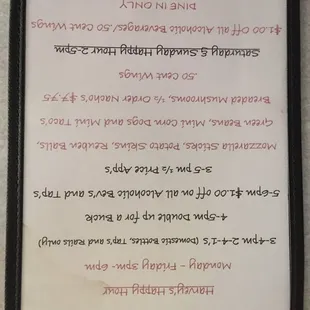 Harvey's Happy Hour
Monday - Friday 3pm-6pm
3-4pm 2-4-1's (Domestic Bottles, Tap's and Rails only)
4-5pm Double up for a Buck
5-6pm $1.00 off on all Alcoholic Bev's and Tap's
3-5 pm ½ Price App's
Mozzarella Sticks, Potato Skins, Reuben Balls,
Green Beans, Mini Corn Dogs and Mini Taco's
Breaded Mushrooms, ½ Order Nacho's $7.75
.50 Cent Wings
Saturday & Sunday Happy Hour 2-5pm
$1.00 Off all Alcoholic Beverages/.50 Cent Wings
DINE IN ONLY